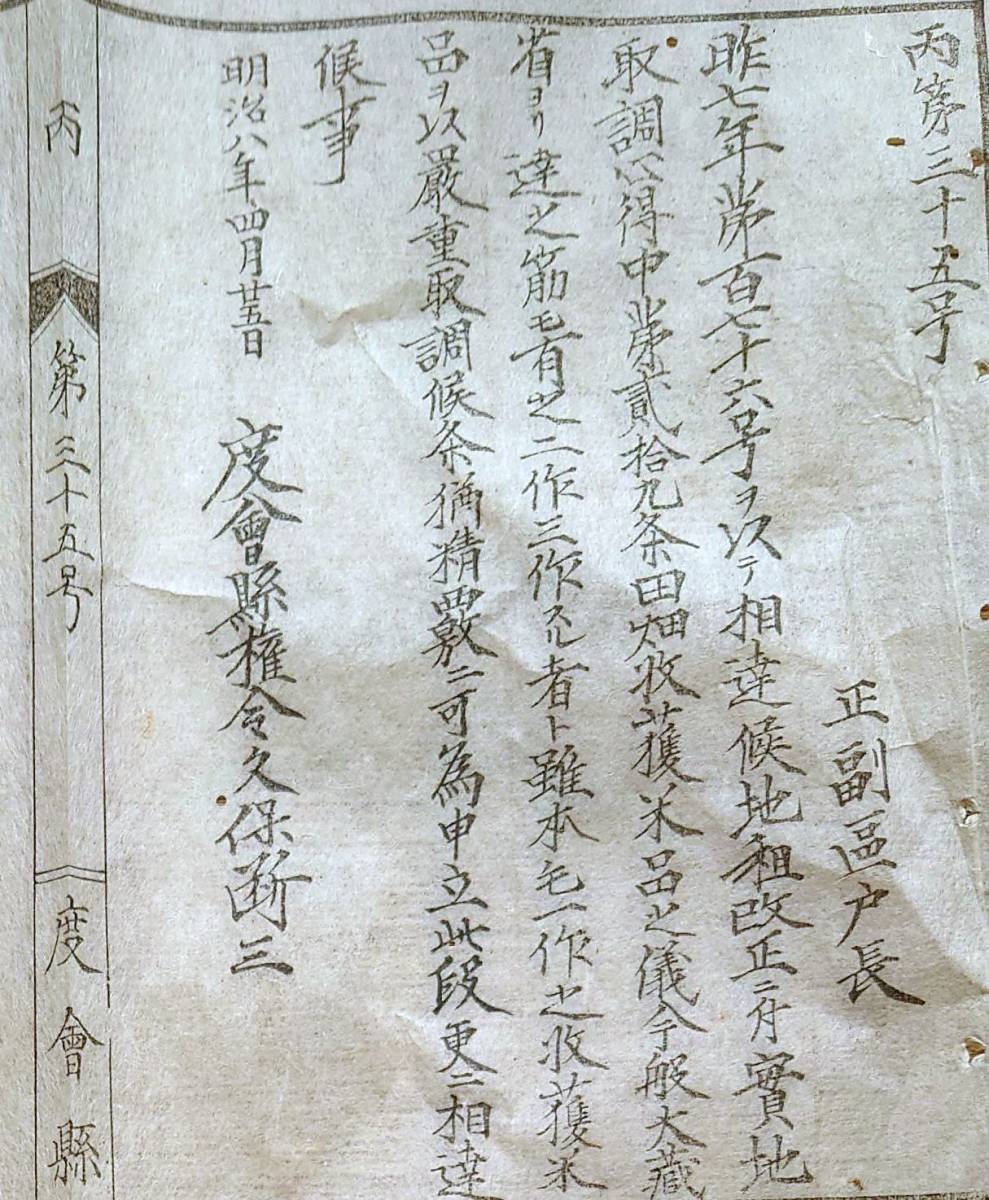 丙第三十五号
正副區戸長
昨七年第百七十六号ヲ以テ相達候地租改正ニ付實地
取調心得中第貳拾九条田畑收獲米品之儀今般大藏
省ヨリ達之筋モ有之二作三作スル者ト雖本毛一作之收獲米
品ヲ以嚴重取調候条猶精覈ニ可為申立此段更ニ相達
候事
明治八年四月廿五日
度會縣權令久保断三
丙 第三十五号 度會縣